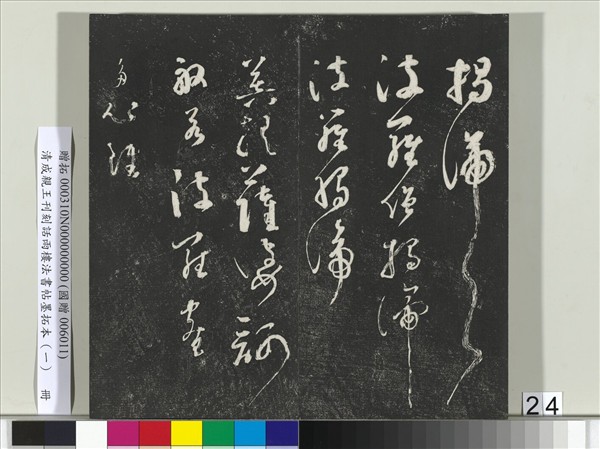 揭諦
波羅僧揭諦
波羅揭諦
菩提薩婆訶
般若波羅蜜
多心經
贈拓 000310N000000000 (國贈 006011)
清成親王刊刻話雨樓法書帖墨拓本(一) 冊
24